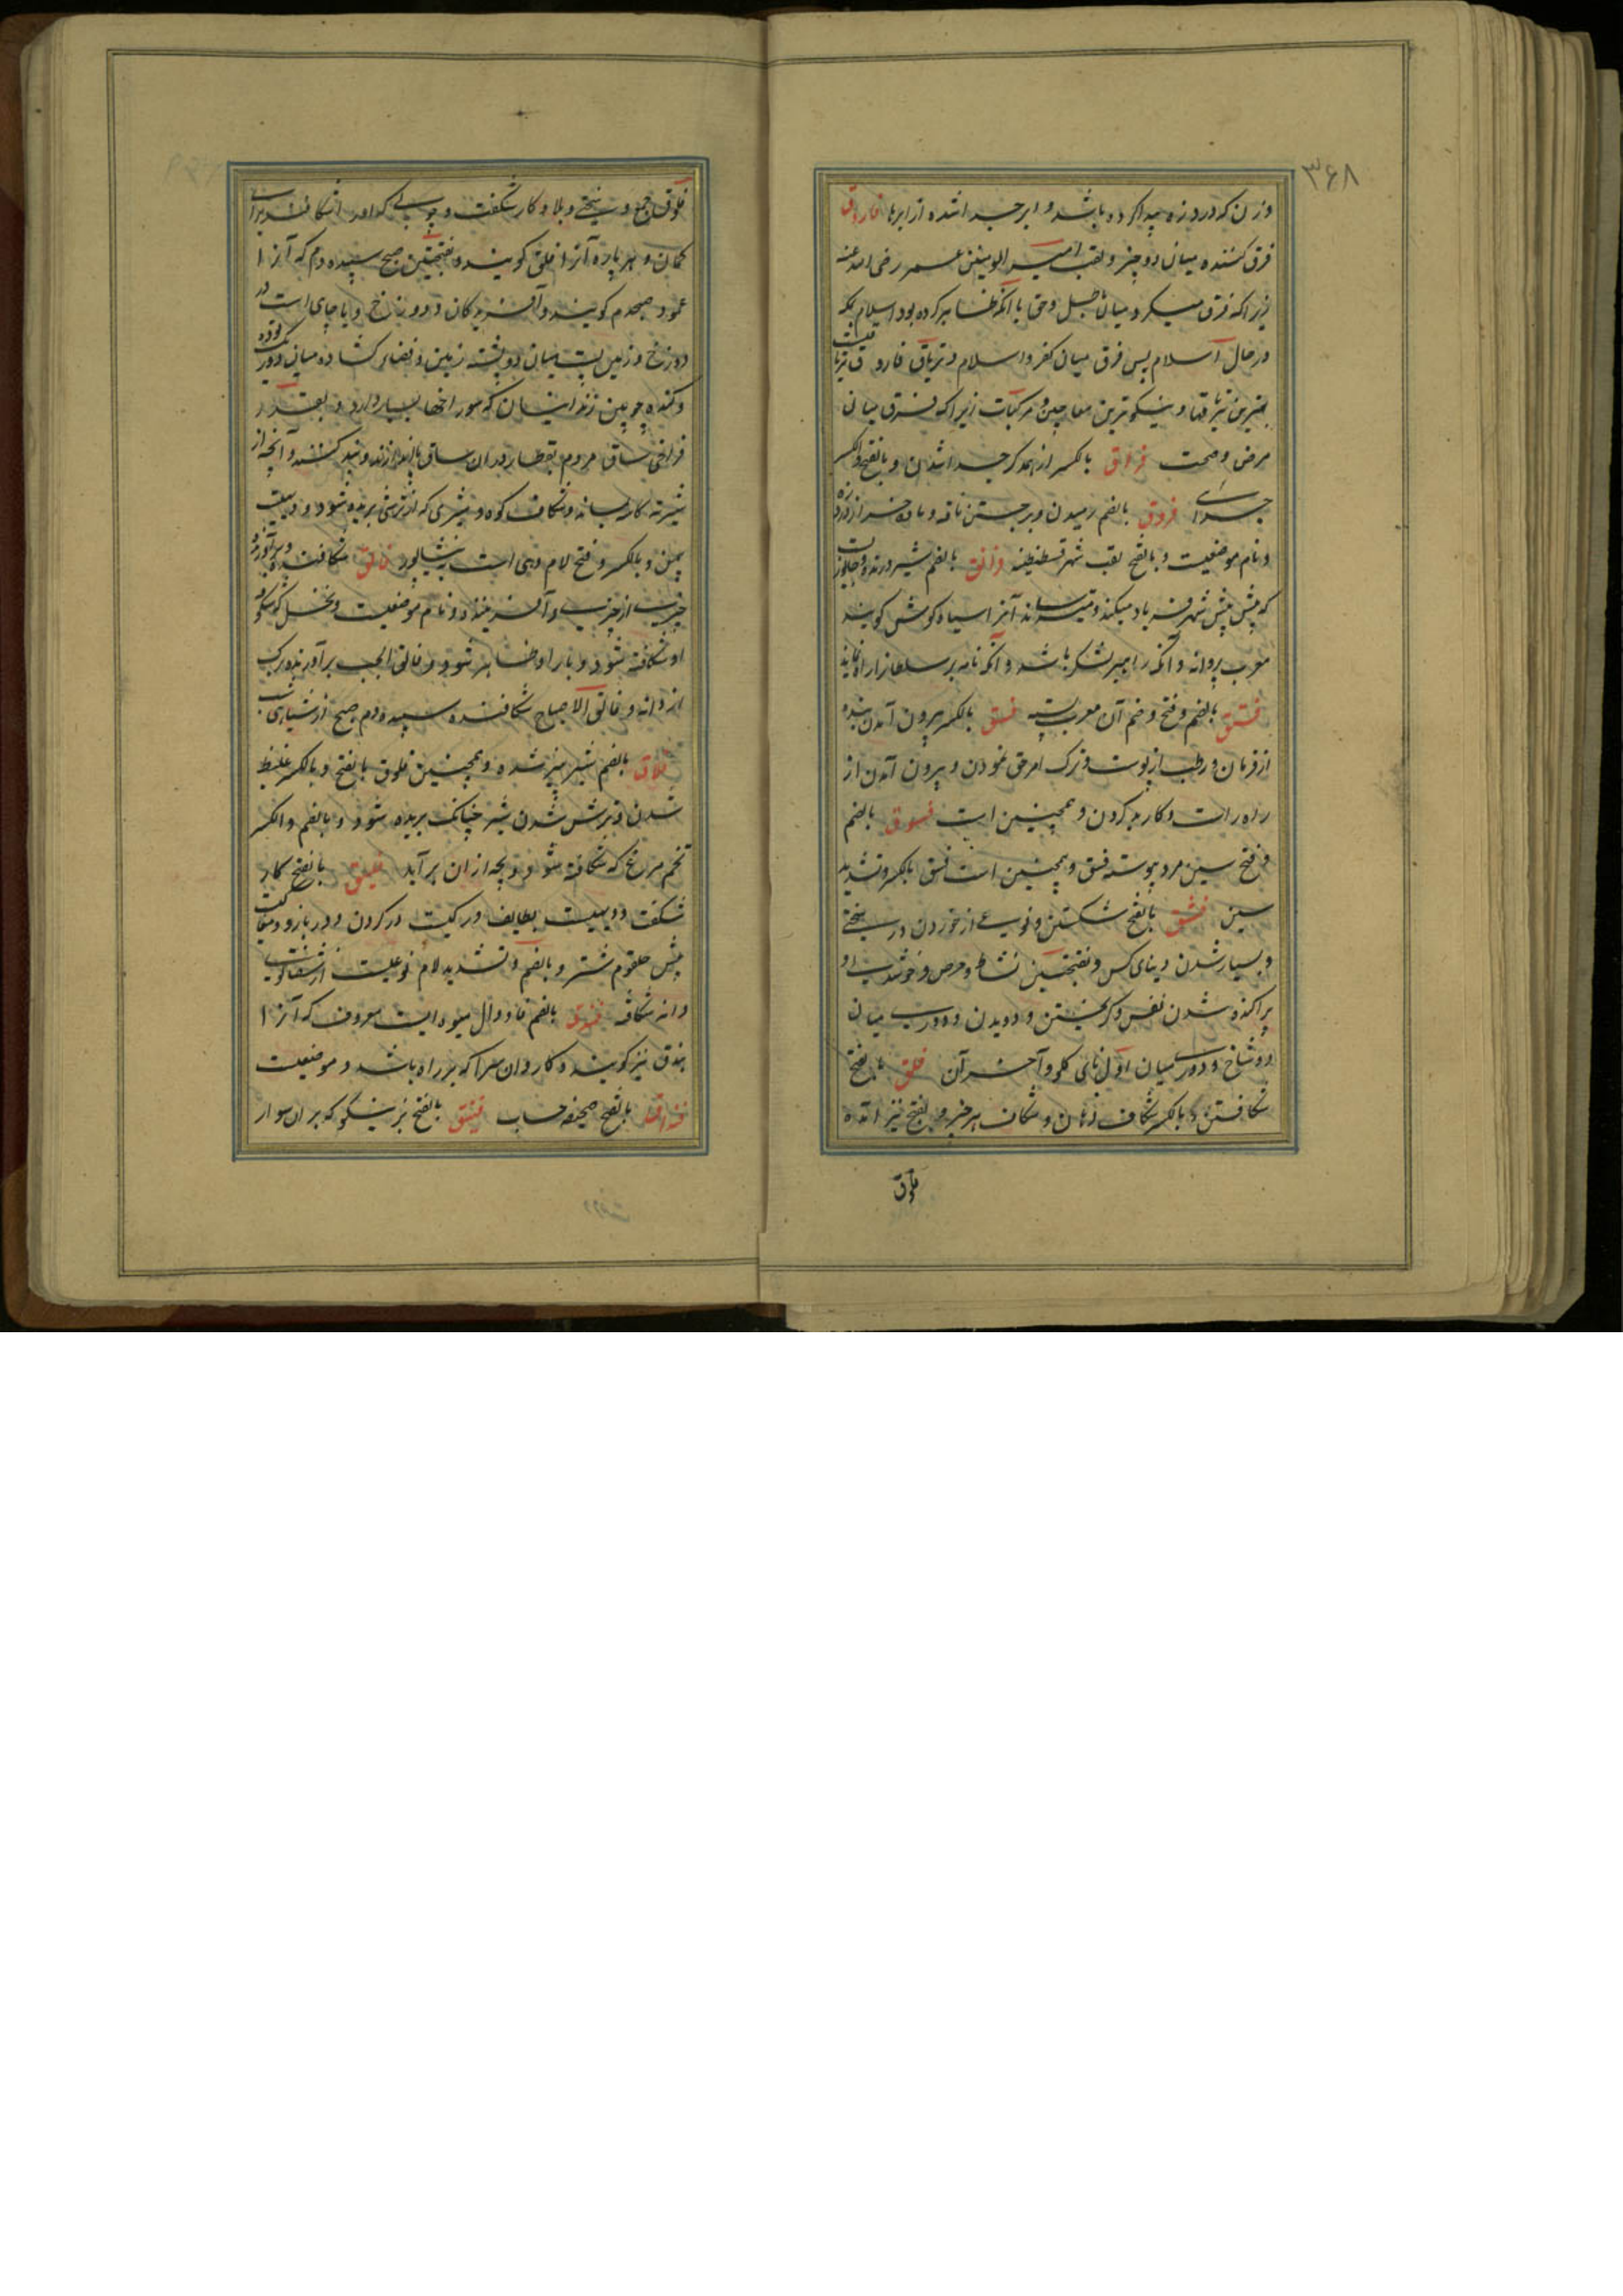 ۳۶۸
وزن که درد زه پیدا کرده باشد و ابر جدا شده از ابرها فاروق
فرق کننده میان دو چیز و لقب امیر المومنین عمر رضی الله عنه
زیرا که فرق میکرد میان باطل و حق یا آنکه ظاهر کرده بود اسلام بمکه
در حال اسلام پس فرق میان کفر و اسلام و تریاق فاروق
بهترین تریاقها و نیکوترین معاجین و مرکبات زیرا که فرق میان
مرض و صحت فراق بالکسر از همدگر جدا شدن و بالفتح والکسر
جدائی فروق بالضم رمیدن و برجستن ناقه و ماده خر از درد زه
و نام موضعیست و بالفتح لقب شهر قسطنطنیه فرانق بالضم شیر درنده
که پیش پیش شیر فریاد میکند و میترساند آنرا سیاه گوش گویند
معرب پروانه و آنکه راهبر لشکر باشد و آنکه نامه بر سلطان را راه نماید
فستق بالضم و فتح و ضم آن معرب پسته فسق بالکسر بیرون آمدن بنده
از فرمان و رطب از پوست و ترک امر حق نمودن و بیرون آمدن از
راه راست و کار بد کردن و همچنین است فسوق بالضم
و فتح سین مرد پیوسته فسق و همچنین است فسیق بالکسر و تشدید
سین فشق بالفتح شکستن و نوعی از خوردن در سختی
و بسیار شدن دنیای کس و بفتحتین نشاط و حرص و خوشدلی و
پراکنده شدن نفس و گریختن و دویدن و دوری میان
دو شاخ و دوری میان اول نای گلو و آخر آن فلق بالفتح
شکافتن و بالکسر شکاف دهان و شکاف هر چیز و بفتح نیز آمده
فلوق
فلوق جمع و سختی و بلا و کار شگفت و چوبی که او را شکافند برای
کمان و هر پاره آنرا فلق گویند و بفتحتین صبح سپیده دم که آنرا
عمود صبحدم گویند و آفریدگان و دوزخ و یا چاهی است در
دوزخ و زمین پست میان دو پشته زمین و فضای گشاده میان دو ریگ توده
و کنده چوبین زندانیان که سوراخها بسیار دارد و بقدر
فراخی ساق مردم بقطار در ان ساق پای اندازند و بند کنند و آنچه از
شیر ته کاسه ماند و شکاف کوه و شیری که از ترشی بریده شود و دهیست
بیمن و بالکسر و فتح لام دهی است بنیشاپور فالق شکافنده و برآورنده
چیزی از چیزی و آفریننده و نام موضعیست و نخل که شکوفه
او شکافته شود و بار او ظاهر شود و فالق الحب برآورنده برگ
از دانه و فالق الاصباح شکافنده سپیده دم صبح از سیاهی شب
فلاق بالضم شیر پنیر شده و همچنین فلوق بالفتح و بالکسر غلیظ
شدن و ترش شدن شیر چنانکه بریده شود و بالضم والکسر
تخم مرغ که شکافته شود و بچه از ان برآید فلیق بالفتح کار
شگفت و دهیست بطایف و رگیست در گردن و در بازو
پیش حلقوم شتر و بالضم و تشدید لام نوعیست از شفتالو
دانه شکاف فندق بالضم فا و دال میوه ایست معروف که آنرا
بندق نیز گویند و کاروان سرا که بر راه باشد و موضعیست
فنداق بالفتح صحیفه حساب فنیق بالفتح نر نیکو که بران سوار